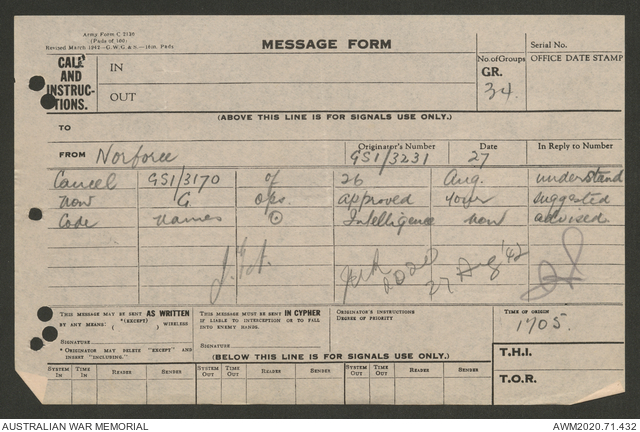 Army Form C 2136
(Pads of 100)
Revised March 1942—G.W.G & S.—16m. Pads.
MESSAGE FORM
Serial No.
CALL AND INSTRUC-TIONS.
IN
OUT
No. of Groups
GR.
34.
OFFICE DATE STAMP
(ABOVE THIS LINE IS FOR SIGNALS USE ONLY.)
TO
FROM Norforce
Originator's Number
GS1/3231
Date
27
In Reply to Number
Cancel GS1/3170 of 26 Aug. understand
now G ops. approved your suggested
Code names ⊙ Intelligence now advised.
2020
27 Aug '42
THIS MESSAGE MAY BE SENT AS WRITTEN
*(EXCEPT)
BY ANY MEANS ( ) WIRELESS
SIGNATURE
* ORIGINATOR MAY DELETE "EXCEPT" AND INSERT "INCLUDING."
THIS MESSAGE MUST BE SENT IN CYPHER
IF LIABLE TO INTERCEPTION OR TO FALL INTO ENEMY HANDS.
SIGNATURE
ORIGINATOR'S INSTRUCTIONS
DEGREE OF PRIORITY
TIME OF ORIGIN
1705.
(BELOW THIS LINE IS FOR SIGNALS USE ONLY.)
T.H.I.
T.O.R.
SYSTEM IN TIME IN READER SENDER SYSTEM OUT TIME OUT READER SENDER SYSTEM OUT TIME OUT READER SENDER
AUSTRALIAN WAR MEMORIAL
AWM2020.71.432